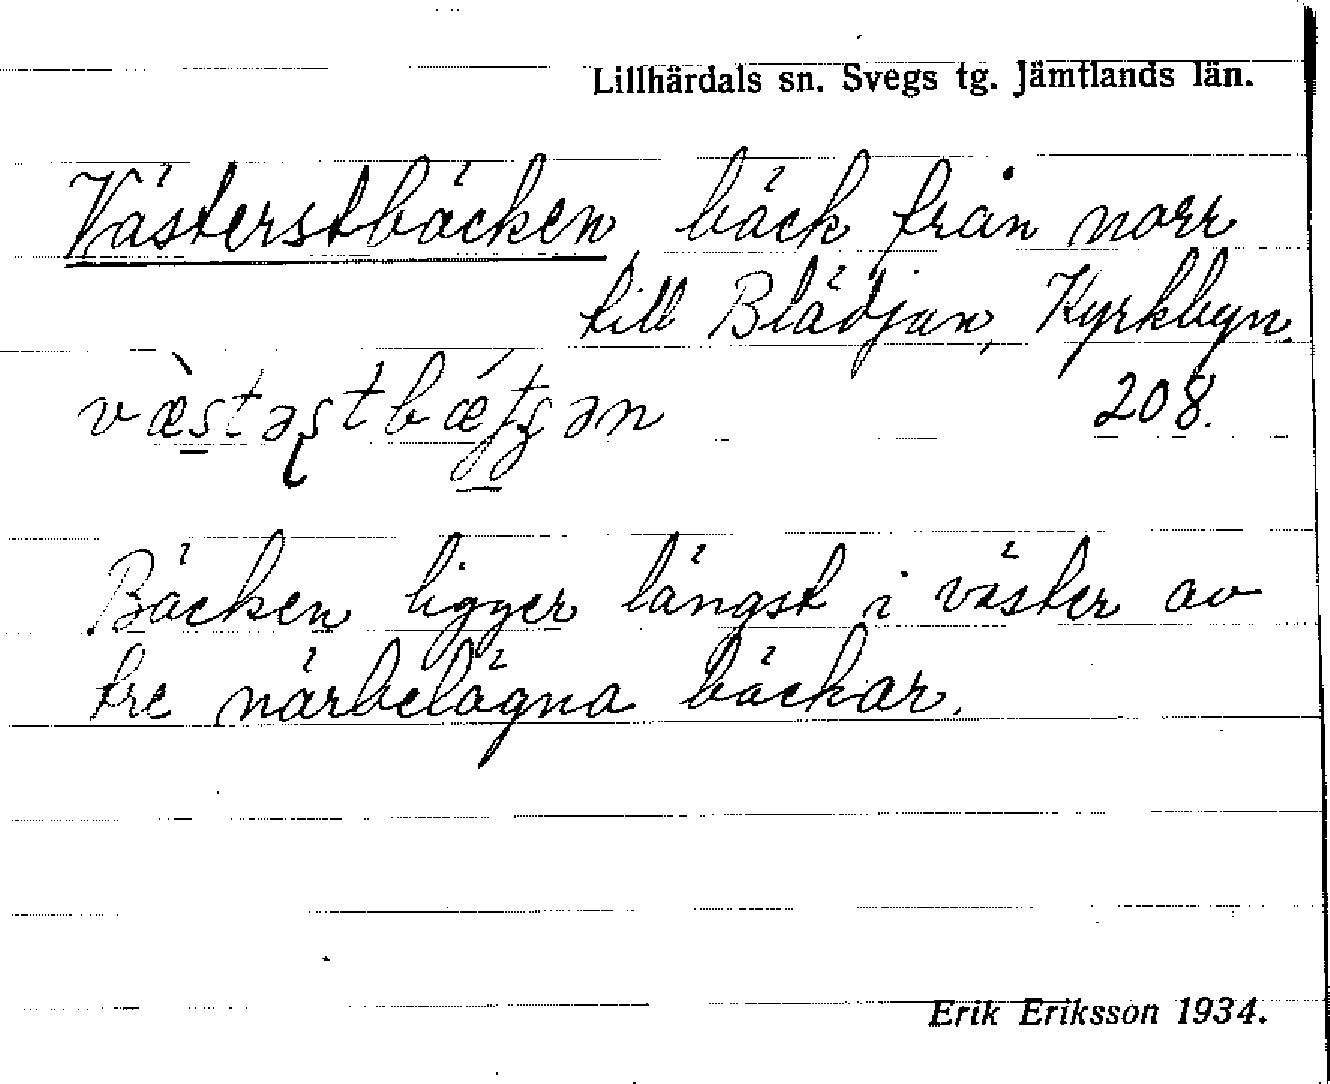 Lillhärdals sn. Svegs tg. Jämtlands län.
Västerstbäcken, bäck från norr
till Blädjan, Kyrkbyn.
208.
Bäcken ligger längst i väster av
tre närbelägna bäckar.
Erik Eriksson 1934.